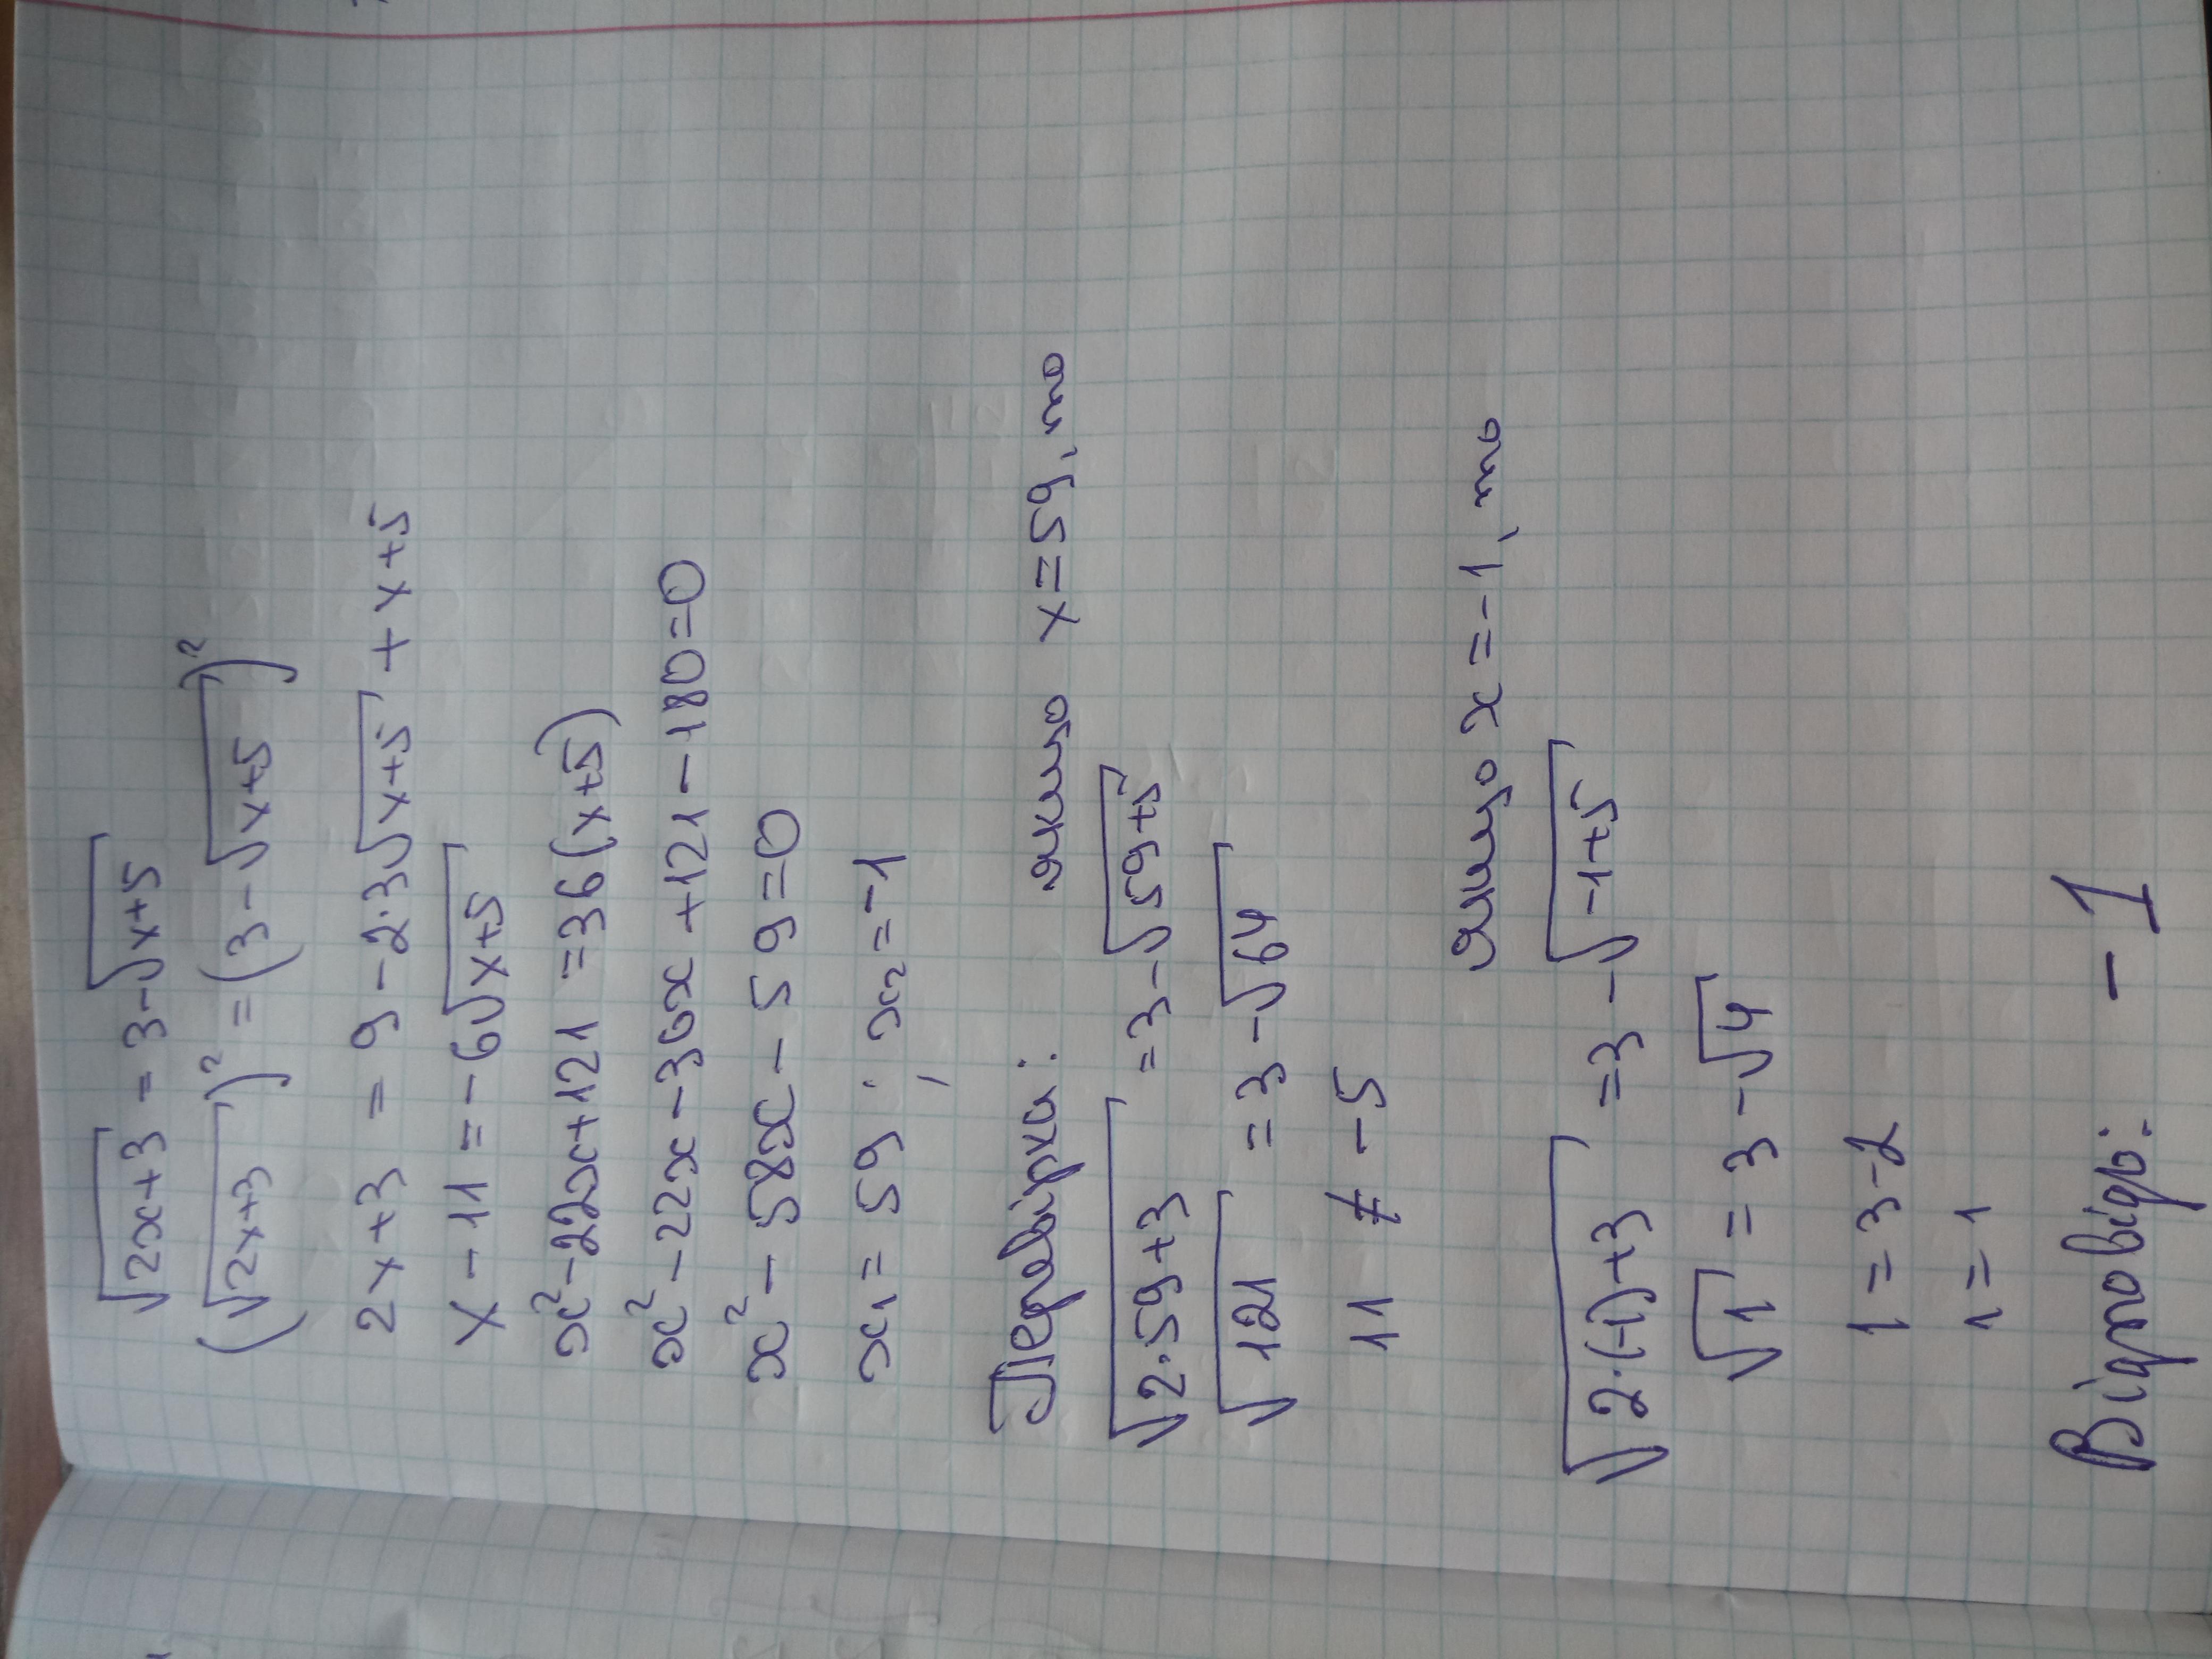 √2x+3 = 3-√x+5
(√2x+3)² = (3-√x+5)²
2x+3 = 9-2·3√x+5 + x+5
x-11 = -6√x+5
x²-22x+121 = 36(x+5)
x²-22x-36x+121-180=0
x²-58x-59=0
x₁=59; x₂=-1
Перевірка: якщо x=59, то
√2·59+3 =3-√59+5
√121 =3-√64
11 ≠ -5
якщо x=-1, то
√2·(-1)+3 =3-√-1+5
√1 = 3-√4
1=3-2
1=1
Відповідь: -1